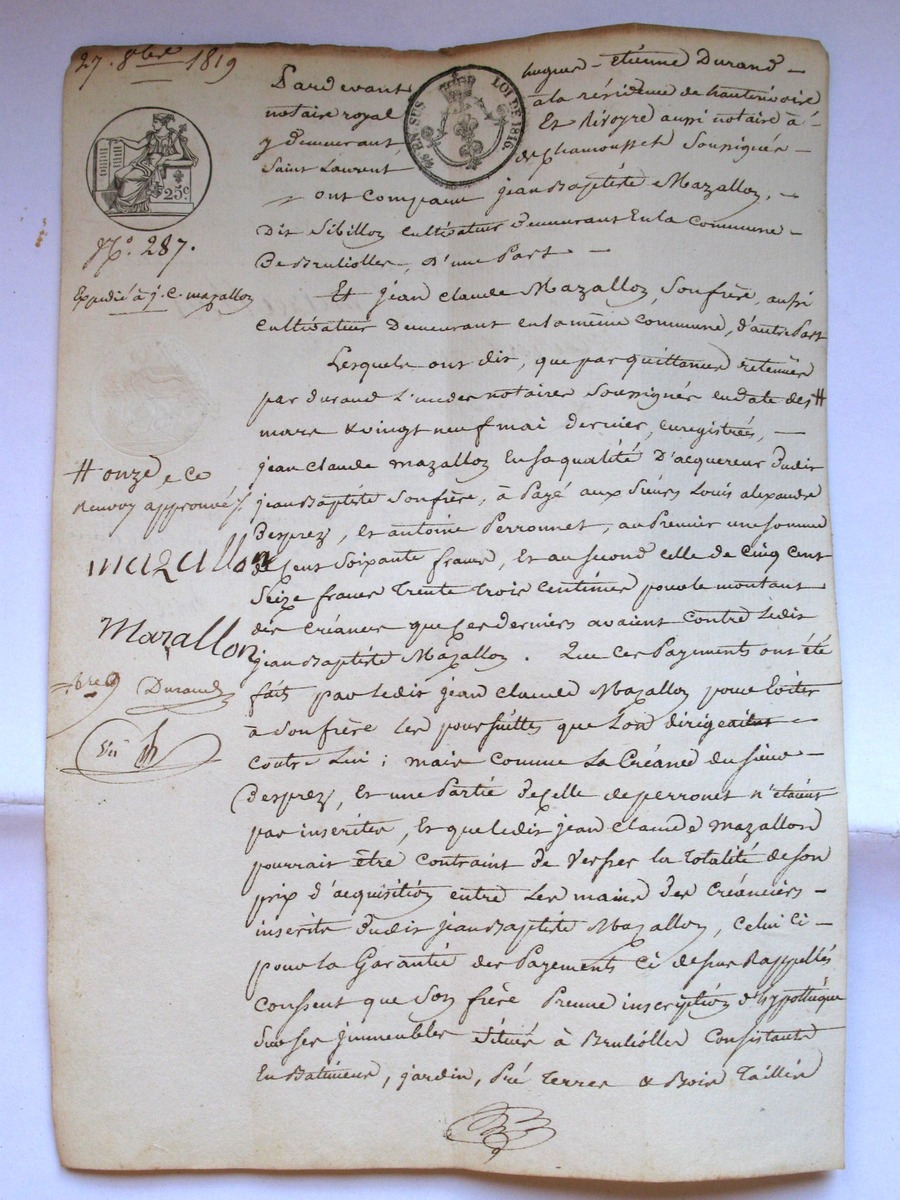 27. 8bre 1819
25 EN SUS LOI DE 1816
25c.
No. 287.
Expedié à j. c. mazallon
# onze # Ce
Renvoy approuvé
mazallon
Mazallon
Durand
Pardevant hugues-étienne Durand -
notaire royal à la résidence de hauterivoire
Et Rivoyre aussi notaire à -
y demeurant
Saint Laurent de Chamousset Soussignés -
- ont Comparu jean Baptiste Mazallon, -
Dit Sibillon cultivateur demeurant En la Commune -
De Brullolles, D'une Part -
Et jean Claude Mazallon, Son frère, aussi
Cultivateur Demeurant en la même Commune, d'autre Part
Lesquels ont dit, que par quittances retenües
par durand L'un des notaires Soussignés en date des #
mars & vingt neuf mai dernier, enregistrées, -
jean Claude mazallon En sa qualité D'acquereur dudit
jean Baptiste Son frère, à Payé aux Sieurs Louis alexandre
Desprez, Et antoine Perronnet, au Premier une somme
de Cent Soixante francs, Et au second celle de Cinq Cent
Seize francs Trente Trois Centimes pour le montant
des Créances que Ces derniers avaient Contre Ledit
jean Baptiste Mazallon. Que Ces Payements ont été
faits par ledit jean Claude Mazallon pour Eviter
à Son frère Les poursuittes que L'on dirigeait -
contre Lui; mais Comme La Créance du Sieur -
Desprez, Et une Partie de Celle de perronet n'étaient
pas inscrites, Et que ledit jean Claude mazallon
pourrait être Contraint de Verser la Totalité de son
prix d'acquisition entre Les mains des Créanciers -
inscrits dudit jean Baptiste Mazallon, Celui Ci -
pour la Garantie des Payements Ci dessus Rappellés
Consent que Son frère Prenne inscription d'hypothèque
Sur Ses immeubles Situés à Brullolles Consistants
En Batiments, jardin, Pré Terres & Bois Taillis